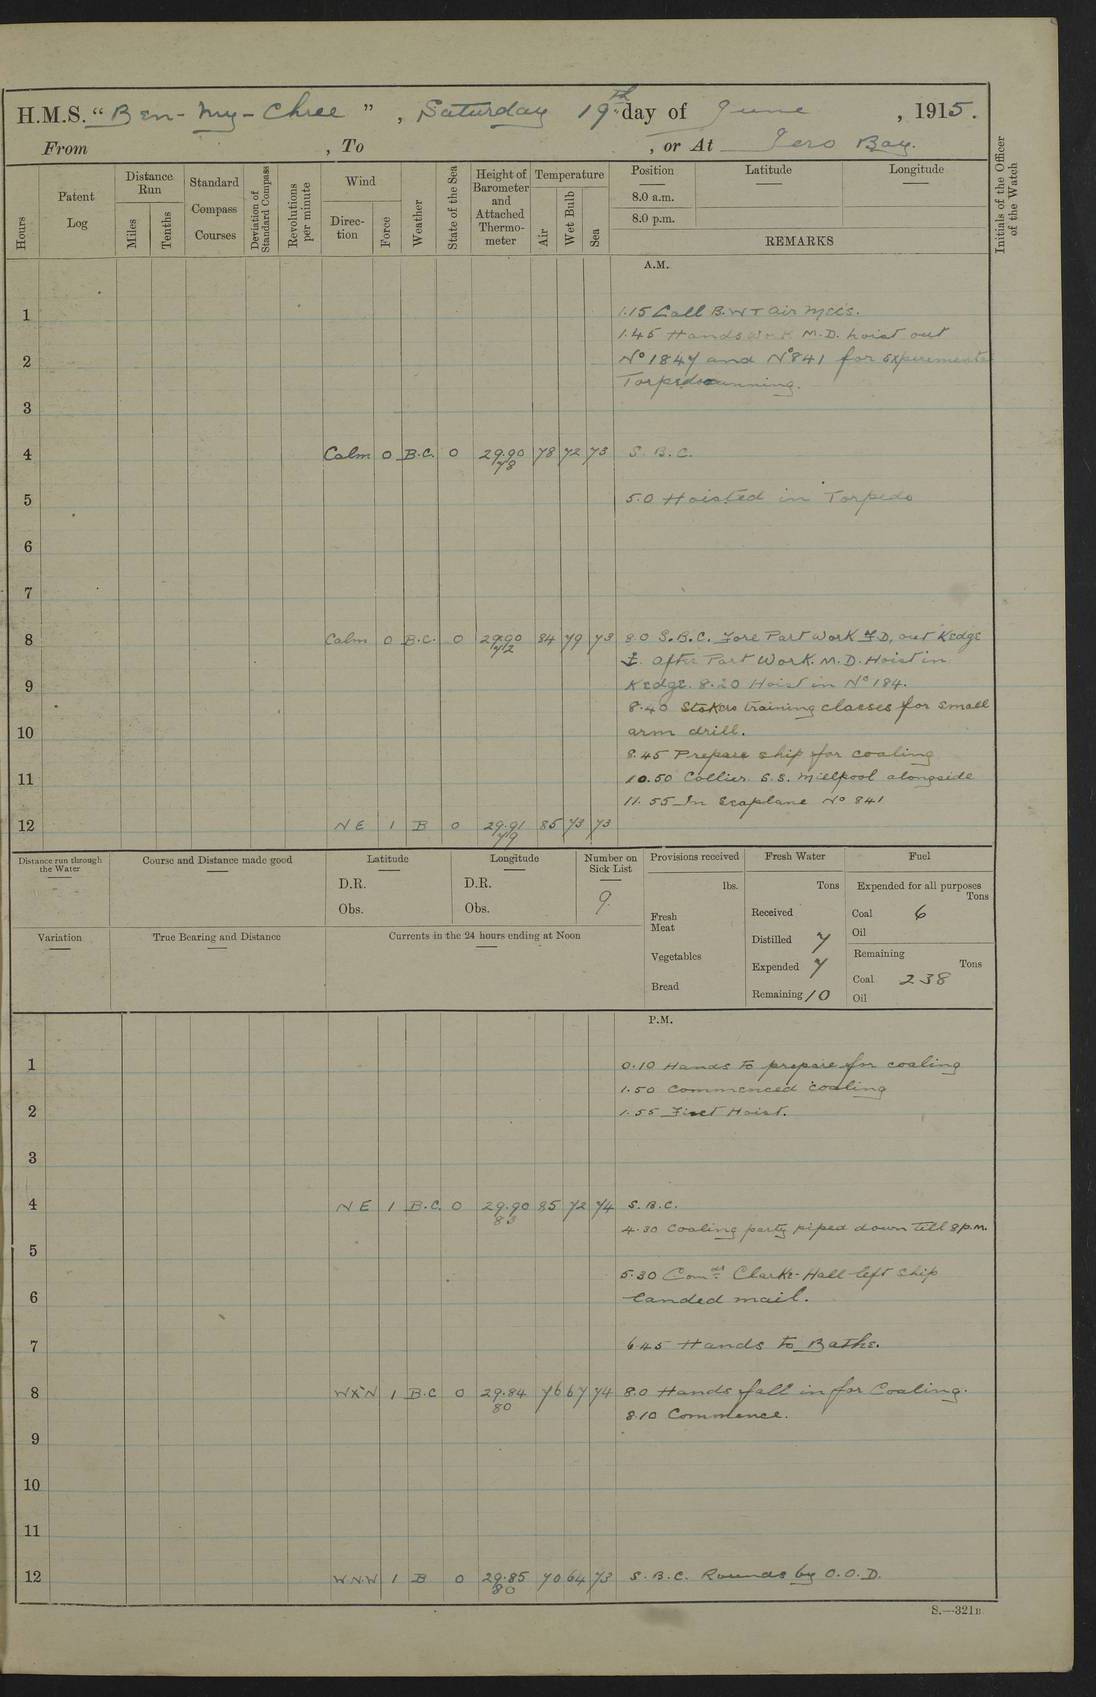 H.M.S. “Ben-my-Chree”, Saturday 19th day of June, 1915.
From , To , or At Iero Bay.
Hours
Patent Log
Distance Run
Miles
Tenths
Standard Compass Courses
Deviation of Standard Compass
Revolutions per minute
Wind
Direction
Force
Weather
State of the Sea
Height of Barometer and Attached Thermometer
Temperature
Air
Wet Bulb
Sea
Position
Latitude
Longitude
8.0 a.m.
8.0 p.m.
REMARKS
Initials of the Officer of the Watch
A.M.
1 1.15 Call B.W.T air mccs.
1.45 Hands work M.D. hoist out
2 No 184 and No 841 for experimental
Torpedo running.
3
4 Calm 0 B.C. 0 29.90 78 78 72 73 S.B.C.
5 5.0 Hoisted in Torpedo
6
7
8 Calm 0 B.C. 0 29.90 72 84 79 73 8.0 S.B.C. Fore Part Work F.D, out Kedge
& After Part Work. M.D. Hoist in
9 Kedge. 8.20 Hoist in No 184.
8.40 Stokers training classes for small
10 arm drill.
8.45 Prepare ship for coaling
11 10.50 Collier S.S. Millpool alongside
11.55 In Seaplane No 841
12 NE 1 B 0 29.91 79 85 73 73
Distance run through the Water
Course and Distance made good
Latitude
D.R.
Obs.
Longitude
D.R.
Obs.
Number on Sick List
9
Provisions received
lbs.
Fresh Meat
Vegetables
Bread
Fresh Water
Tons
Received
Distilled 7
Expended 7
Remaining 10
Fuel
Expended for all purposes
Tons
Coal 6
Oil
Remaining
Tons
Coal 238
Oil
Variation
True Bearing and Distance
Currents in the 24 hours ending at Noon
P.M.
1 0.10 Hands to prepare for coaling
1.50 Commenced coaling
2 1.55 First Hoist.
3
4 NE 1 B.C. 0 29.90 83 85 72 74 S.B.C.
4.30 Coaling party piped down till 8 p.m.
5
5.30 Comdr Clarke-Hall left ship
6 Landed mail.
7 6.45 Hands to Bathe.
8 WXN 1 B.C 0 29.84 80 76 67 74 8.0 Hands fall in for Coaling.
8.10 Commence.
9
10
11
12 WNW 1 B 0 29.85 80 70 64 73 S.B.C. Rounds by O.O.D.
S.—321B